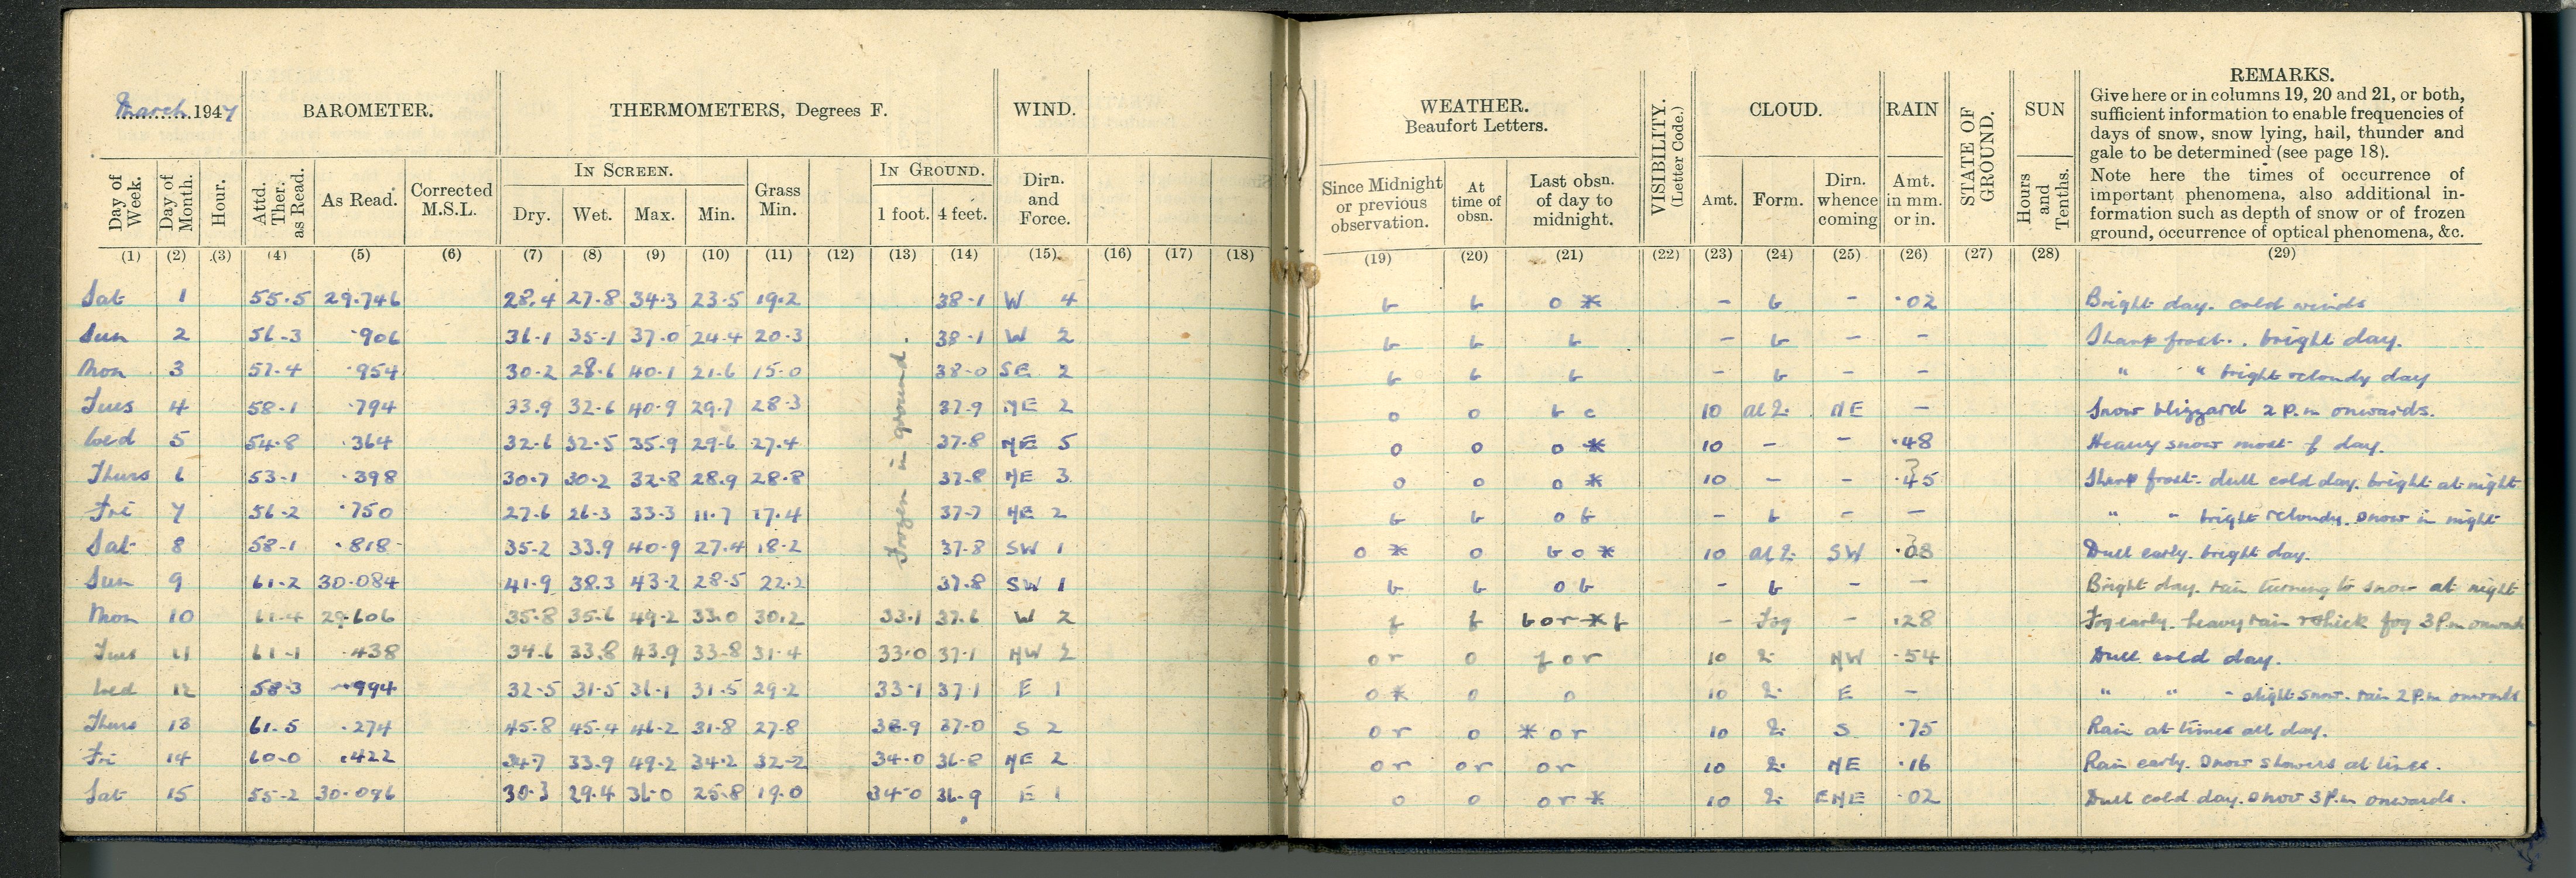 March 1947
BAROMETER.
THERMOMETERS, Degrees F.
WIND.
Day of Week.
Day of Month.
Hour.
Attd. Ther. as Read.
As Read.
Corrected M.S.L.
IN SCREEN.
Dry. Wet. Max. Min.
Grass Min.
IN GROUND.
1 foot. 4 feet.
Dirn. and Force.
(1) (2) (3) (4) (5) (6) (7) (8) (9) (10) (11) (12) (13) (14) (15) (16) (17) (18)
Sat 1 55.5 29.746 28.4 27.8 34.3 23.5 19.2 38.1 W 4
Sun 2 56.3 .906 36.1 35.1 37.0 24.4 20.3 38.1 W 2
Mon 3 57.4 .954 30.2 28.6 40.1 21.6 15.0 38.0 SE 2
Tues 4 58.1 .794 33.9 32.6 40.9 29.7 28.3 37.9 NE 2
Wed 5 54.8 .364 32.6 32.5 35.9 29.6 27.4 37.8 NE 5
Thurs 6 53.1 .398 30.7 30.2 32.8 28.9 28.8 37.8 NE 3
Fri 7 56.2 .750 27.6 26.3 33.3 11.7 17.4 37.7 NE 2
Sat 8 58.1 .818 35.2 33.9 40.9 27.4 18.2 37.8 SW 1
Sun 9 61.2 30.084 41.9 38.3 43.2 28.5 22.2 37.8 SW 1
Frozen in ground.
Mon 10 61.4 29.606 35.8 35.6 49.2 33.0 30.2 33.1 37.6 W 2
Tues 11 61.1 .438 34.6 33.8 43.9 33.8 31.4 33.0 37.1 NW 2
Wed 12 58.3 .994 32.5 31.5 36.1 31.5 29.2 33.1 37.1 E 1
Thurs 13 61.5 .274 45.8 45.4 46.2 31.8 27.8 33.9 37.0 S 2
Fri 14 60.0 .422 34.7 33.9 49.2 34.2 32.2 34.0 36.8 NE 2
Sat 15 55.2 30.096 30.3 29.4 36.0 25.8 19.0 34.0 36.9 E 1
WEATHER.
Beaufort Letters.
Since Midnight or previous observation.
At time of obsn.
Last obsn. of day to midnight.
VISIBILITY. (Letter Code.)
CLOUD.
Amt. Form. Dirn. whence coming
RAIN
Amt. in mm. or in.
STATE OF GROUND.
SUN
Hours and Tenths.
REMARKS.
Give here or in columns 19, 20 and 21, or both,
sufficient information to enable frequencies of
days of snow, snow lying, hail, thunder and
gale to be determined (see page 18).
Note here the times of occurrence of
important phenomena, also additional in-
formation such as depth of snow or of frozen
ground, occurrence of optical phenomena, &c.
(19) (20) (21) (22) (23) (24) (25) (26) (27) (28) (29)
b b o * – b – .02 Bright day. cold winds
b b b – b – – Sharp frost. bright day.
b b b – b – – " " bright & cloudy day
o o b c 10 NE – Snow blizzard 2 P.m onwards.
o o o * 10 – – .48 Heavy snow most of day.
o o o * 10 – – .45 Sharp frost. dull cold day. bright at night
b b o b – b – – " " bright & cloudy. snow in night
o * o b o * 10 SW Dull early. bright day.
b b o b – b – – Bright day. rain turning to snow at night
f f b o r * f – Fog – .28 Fog early. heavy rain & thick fog 3 P.m onwards
o r o f o r 10 NW .54 Dull cold day.
o * o o 10 E – " " " slight snow. rain 2 P.m onwards
o r o * o r 10 S .75 Rain at times all day.
o r o r o r 10 NE .16 Rain early. Snow showers at times.
o o o r * 10 ENE .02 Dull cold day. Snow 3 P.m onwards.